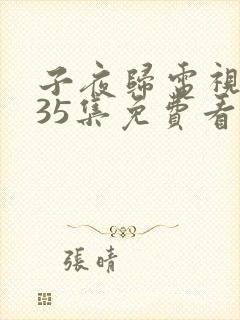 子夜歸電視
35集免費看
張晴